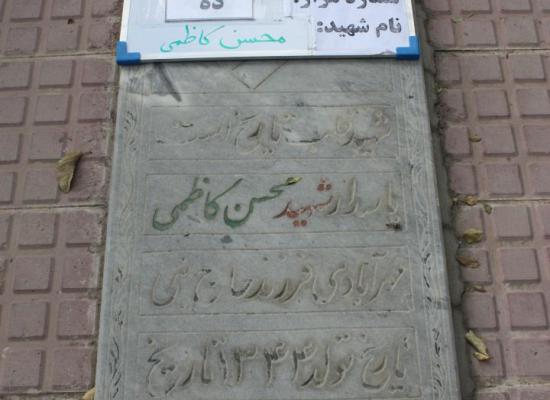 شماره مزار:
ده
نام شهید: محسن کاظمی
شهید قلب تاریخ است
پاسدار شهید محسن کاظمی
مهرآبادی فرزند حاج
تاریخ تولد ۱۳۴۴ تاریخ